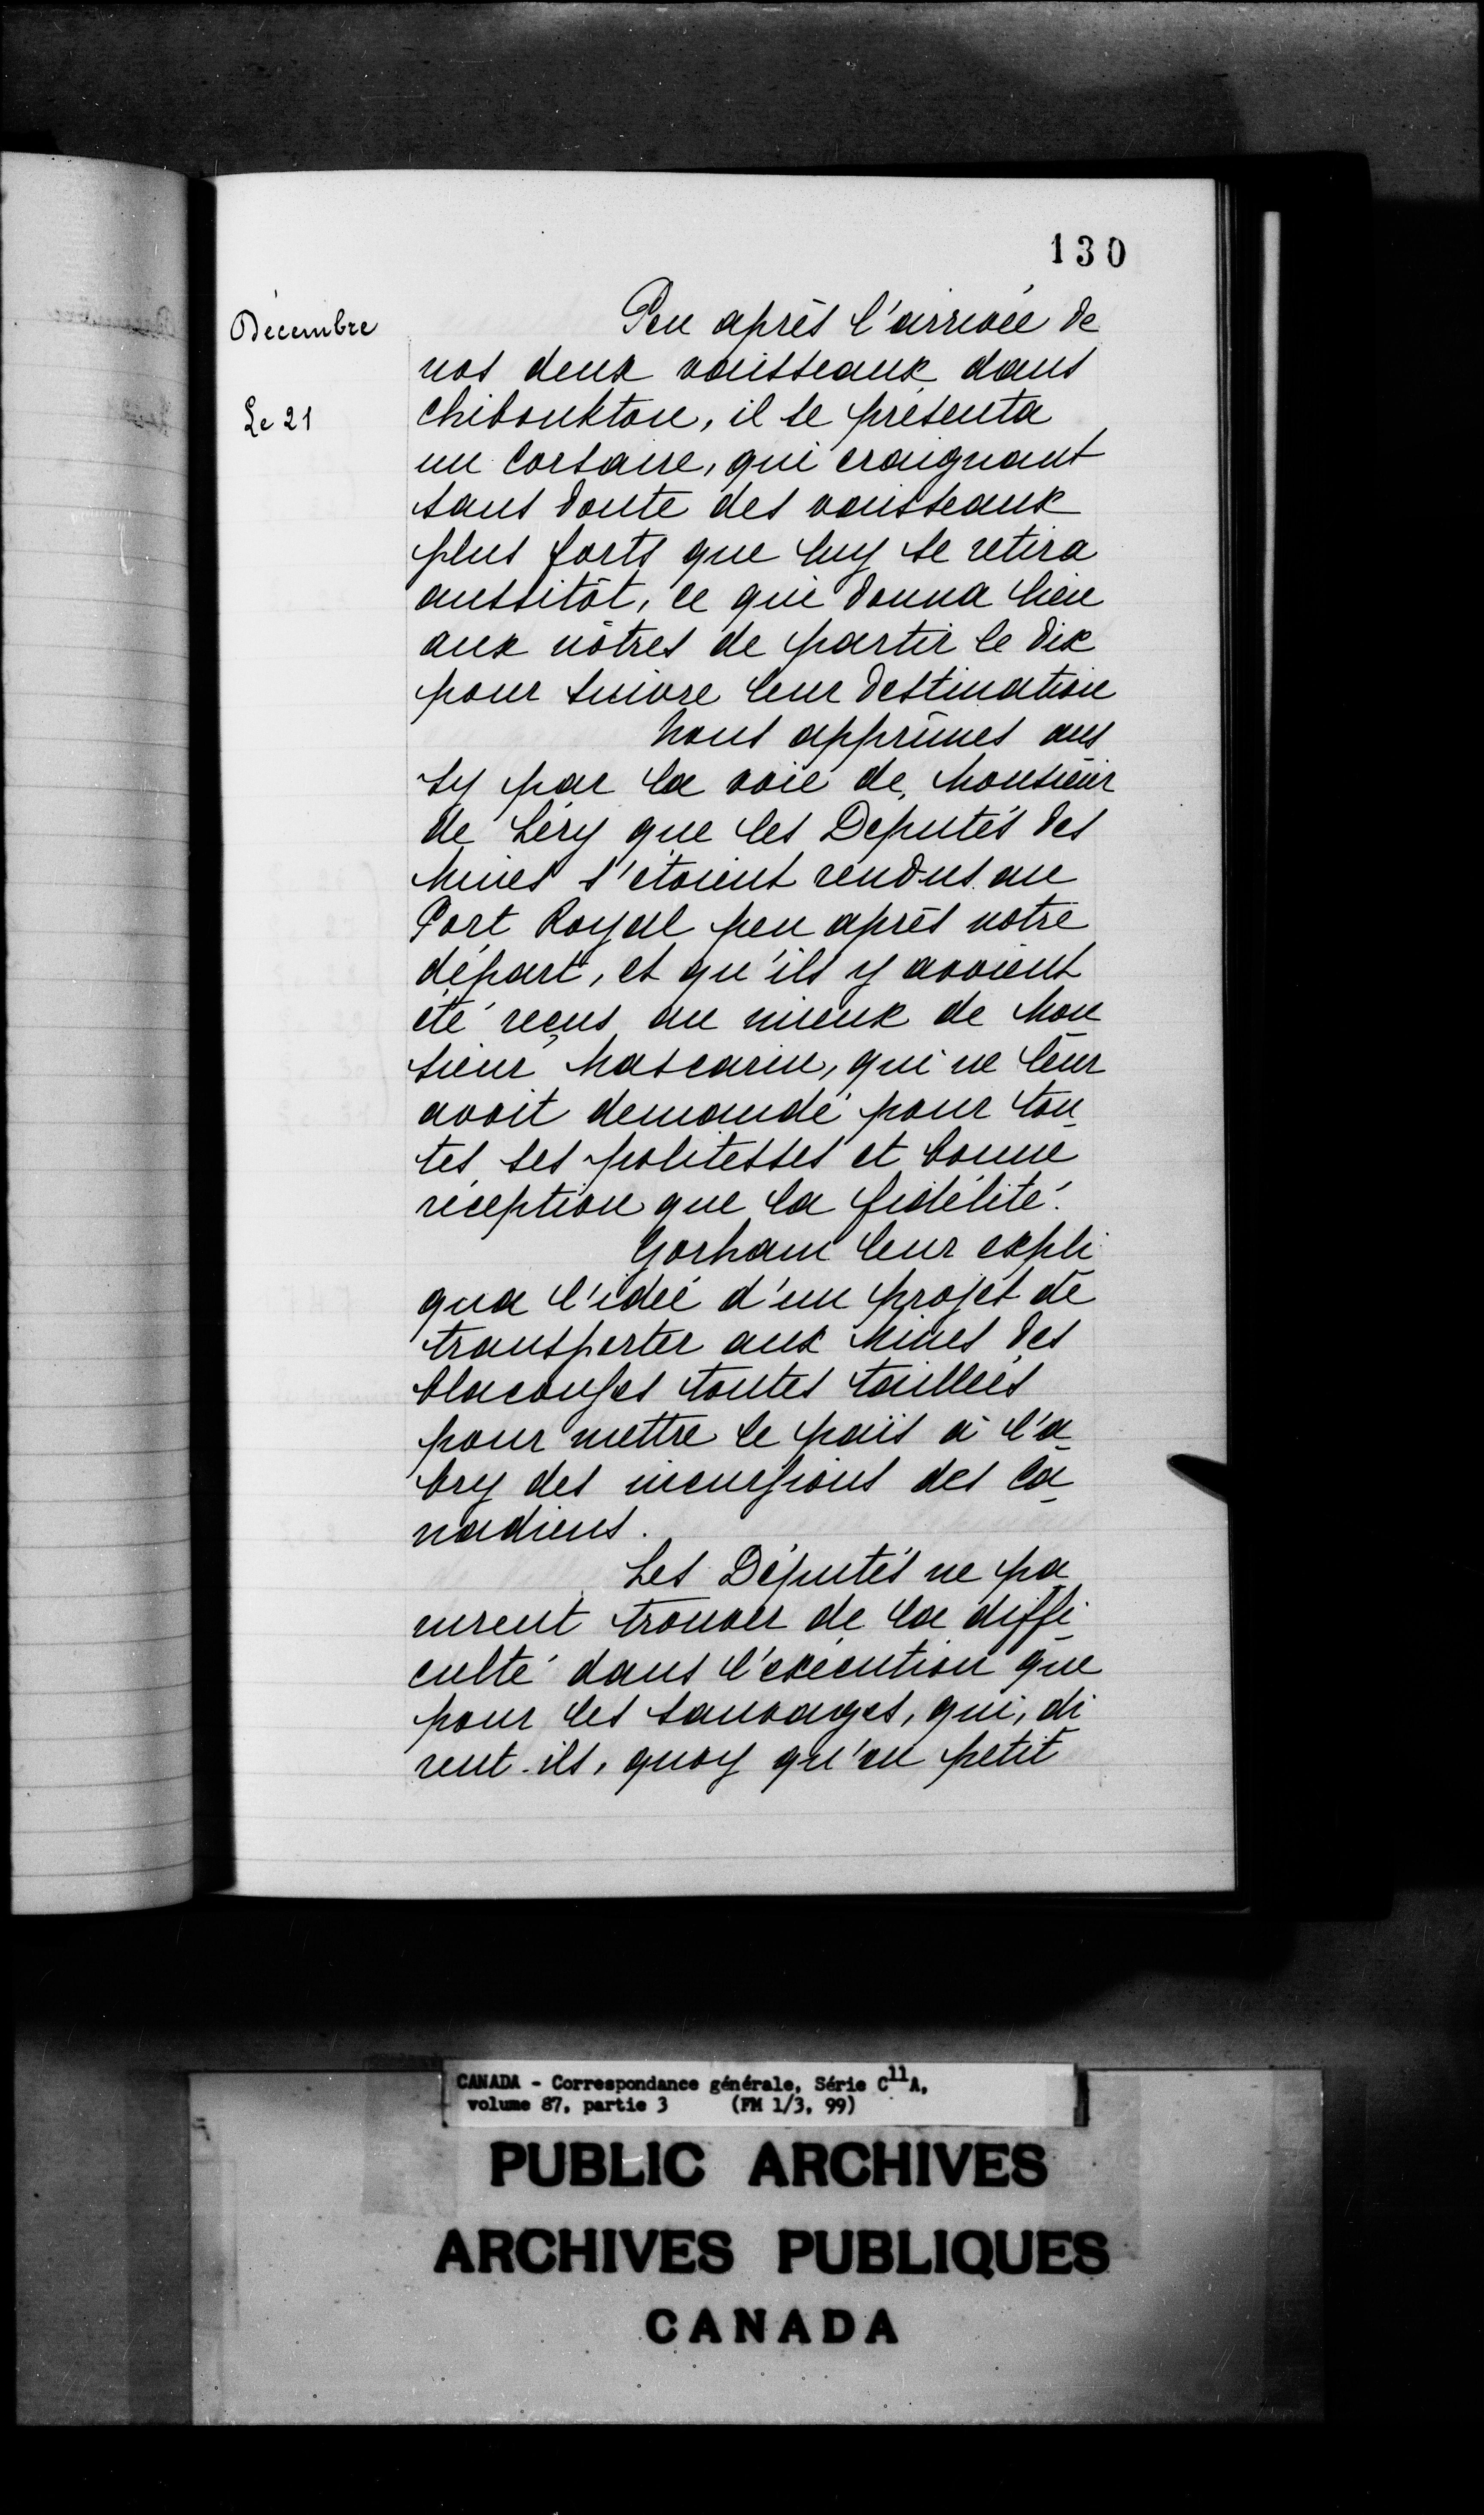 130
Décembre
Le 21
Peu après l'arrivée de
nos deux vaisseaux dans
Chibouktou, il se présenta
un Corsaire, qui craignant
sans doute des vaisseaux
plus forts que luy se retira
aussitôt, ce qui donna lieu
aux nôtres de partir le dix
pour suivre leur destination
Nous apprîmes aus
sy par la voie de Monsieur
de Léry que les Députés des
Mines s'étoient rendus au
Port Royal peu après notre
départ, et qu'ils y avoient
été reçus au mieux de Mon
sieur Mascarin, qui ne leur
avoit demandé pour tou
tes ses politesses et bonne
réception que la fidélité.
Gorham leur expli
qua l'idée d'un projet de
transporter aux Mines des
blacouses toutes taillées
pour mettre le païs à l'a
bry des incursions des Ca
nadiens.
Les Députés ne pa
rurent trouver de la diffi
culté dans l'exécution que
pour les sauvages, qui, di
rent-ils, quoy qu'en petit
CANADA - Correspondance générale, Série C11A,
volume 87, partie 3 (FM 1/3, 99)
PUBLIC ARCHIVES
ARCHIVES PUBLIQUES
CANADA